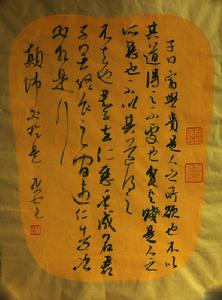 子曰富與貴是人之所欲也不以
其道得之不處也貧與賤是人之
所惡也不以其道得之
不去也君子去仁惡乎成名君
子無終食之間違仁造次
必於是
顛沛必於是